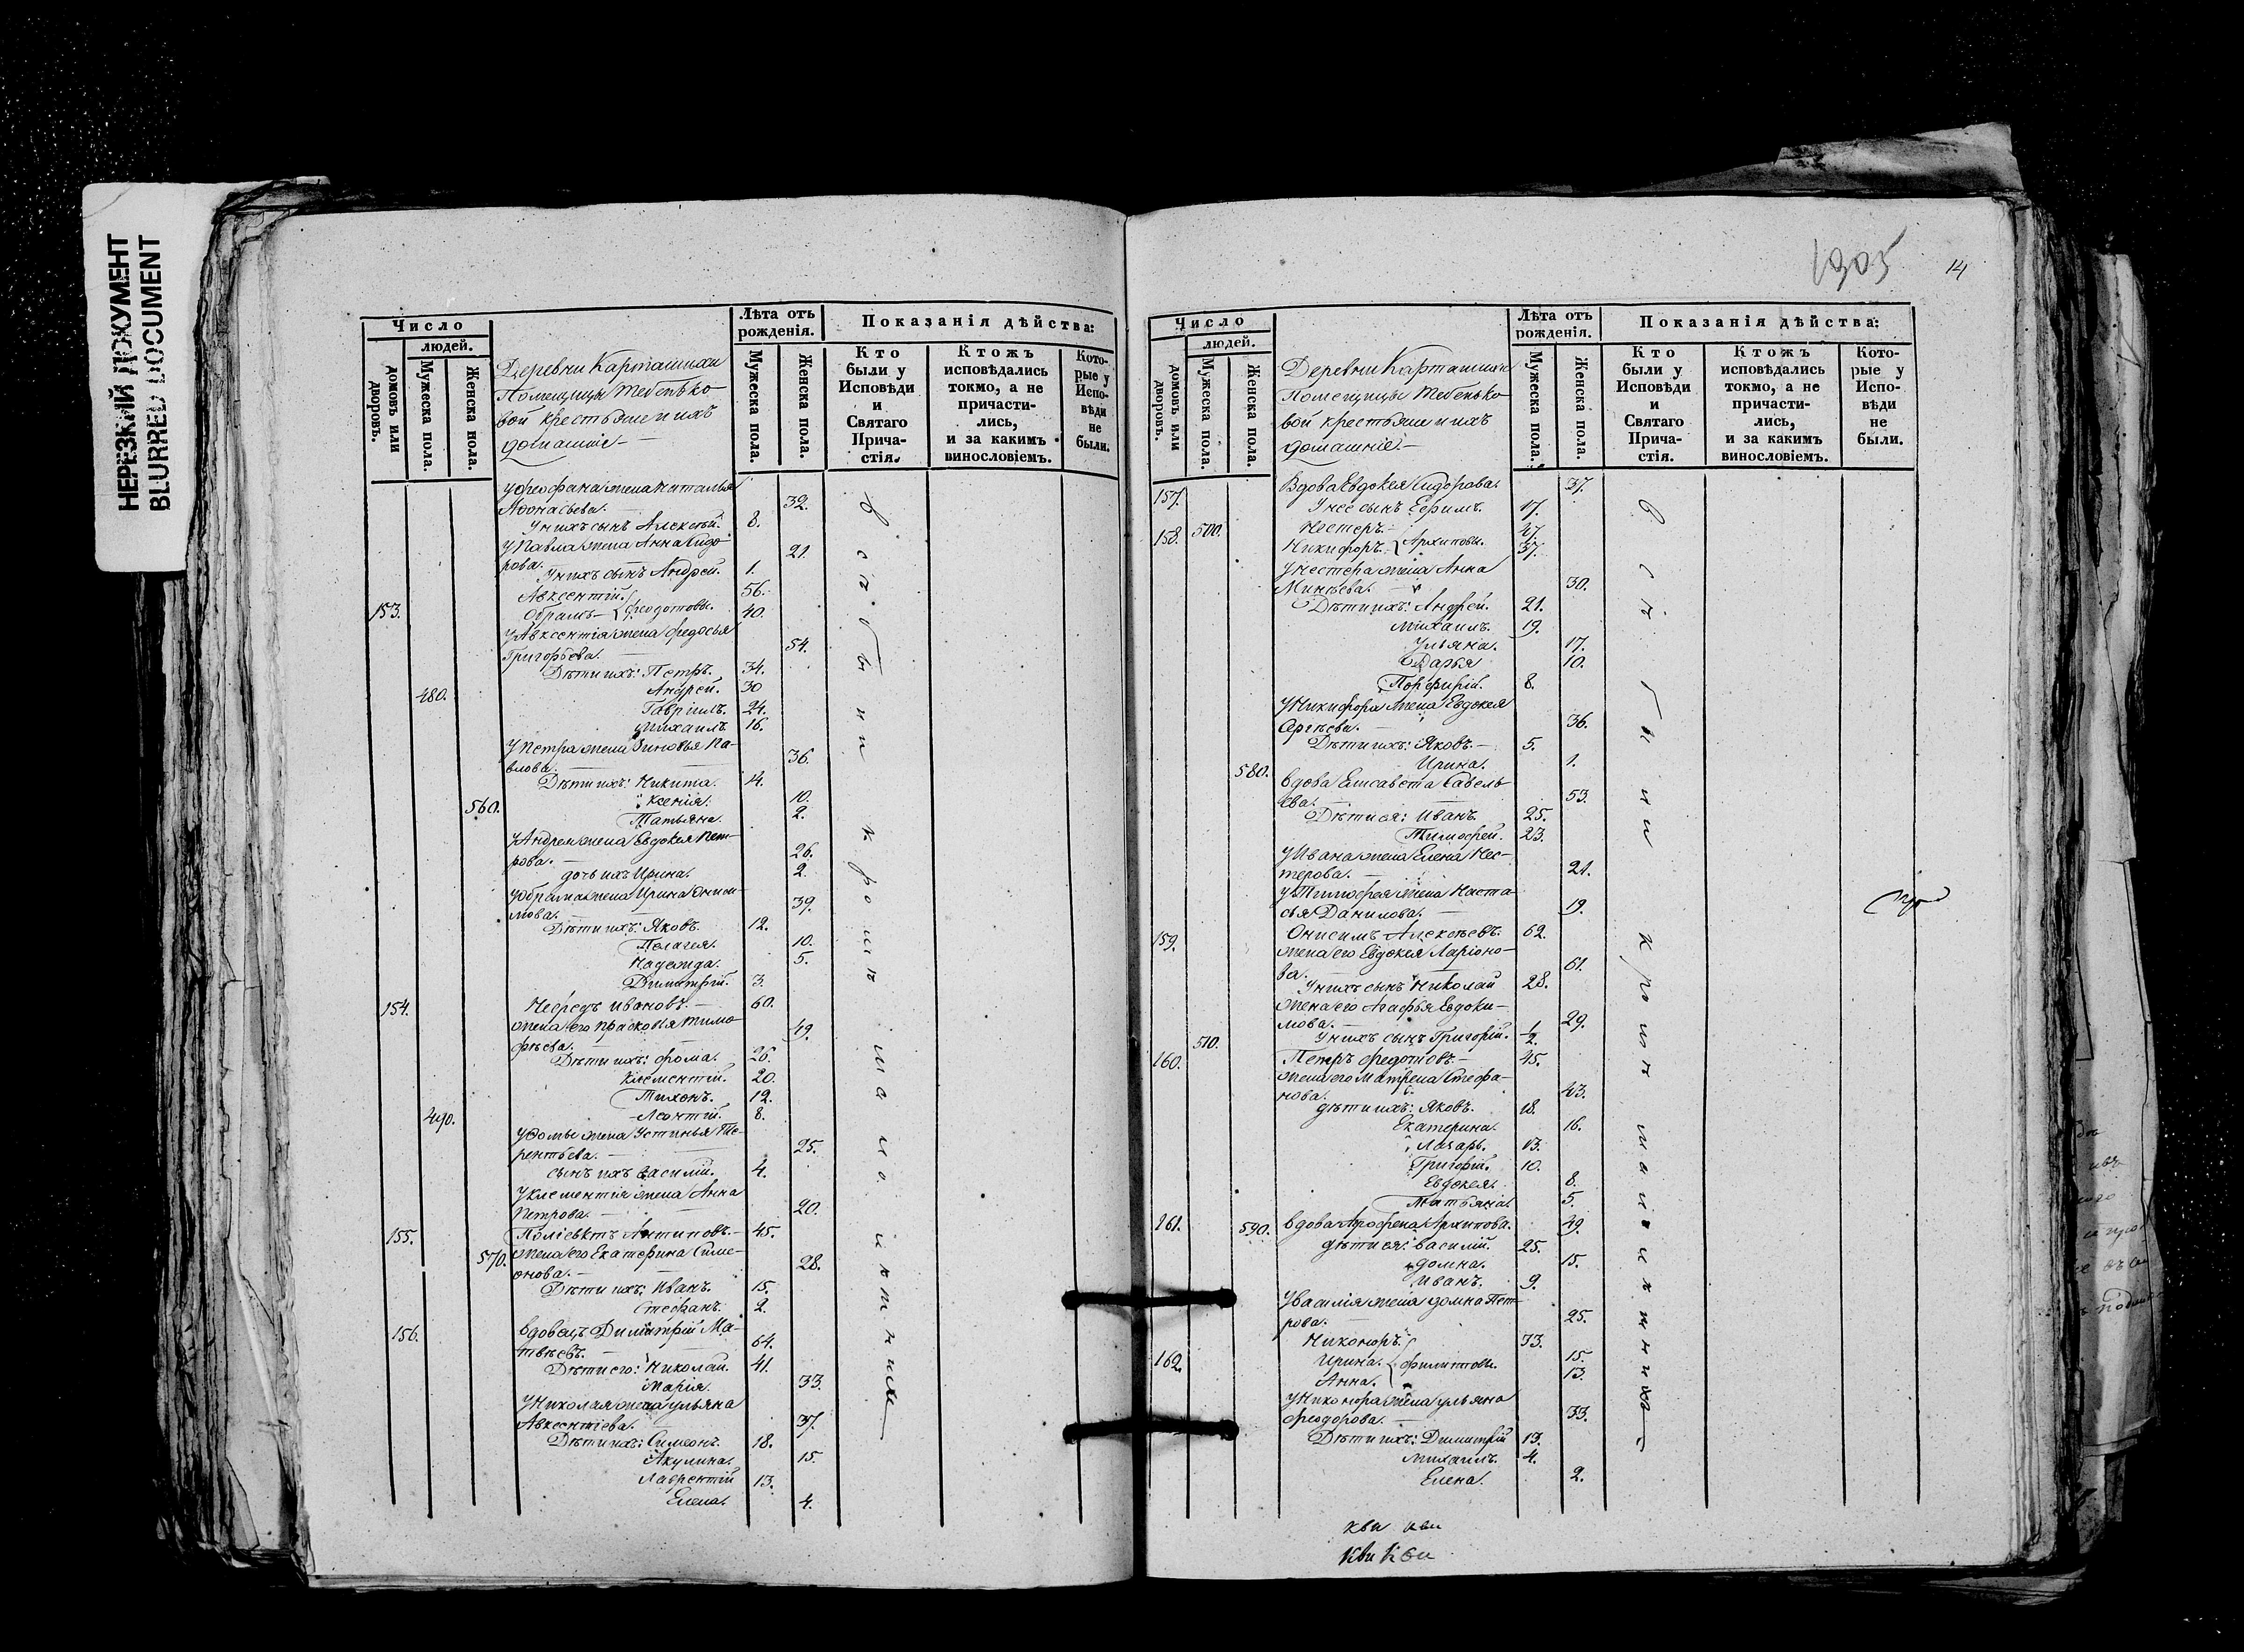 НЕРЕЗКИЙ ДОКУМЕНТ
BLURRED DOCUMENT
Число
людей.
домовъ или дворовъ.
Мужеска пола.
Женска пола.
Деревни Карташихи
Помещицы Тебенько-
вой крестьяне и ихъ
домашніе
Лѣта отъ рожденія.
Мужеска пола.
Женска пола.
Показанія дѣйства:
Кто были у Исповѣди и Святаго Прича-стія.
Ктожъ исповѣдались токмо, а не причасти-лись, и за какимъ винословіемъ.
Кото-рые у Испо-вѣди не были.
У Феофана жена Наталья
Афонасьева. 32.
У нихъ сынъ Алексѣй. 8.
У Павла жена Анна Сидо-
рова. 21.
У нихъ сынъ Андрей. 1.
Авксентій. 56.
153. Абрамъ Феодотовы. 40.
У Авксентія жена Федосья
Григорьева. 54.
Дѣти ихъ: Петръ. 34.
480. Андрей. 30
Гавріилъ. 24.
Михаилъ. 16.
У Петра жена Зиновья Па-
влова. 36.
Дѣти ихъ: Никита. 14.
Ксенія. 10.
560. Татьяна. 2.
У Андрея жена Евдокея Пет-
рова. 26.
дочь ихъ Ирина. 2.
У Обрама жена Ирина Аниси-
мова. 39.
Дѣти ихъ: Яковъ. 12.
Пелагея. 10.
Надежда. 5.
Димитрій. 3.
154. Нефедъ Ивановъ. 60.
жена его Прасковья Тимо-
фѣева. 49.
Дѣти ихъ: Фома. 26.
Клементій. 20.
Тихонъ. 12.
490. Леонтій. 8.
У Фомы жена Устинья Те-
рентьева. 25.
сынъ ихъ Василій. 4.
У Клементія жена Анна
Петрова. 20.
155. Поліевктъ Антиповъ. 45.
570. жена его Екатерина Симе-
онова. 28.
Дѣти ихъ: Иванъ. 15.
Стефанъ. 2.
156. Вдовецъ Димитрій Ма-
твѣевъ. 64.
Дѣти его: Николай. 41.
Марія. 33.
У Николая жена Ульяна
Авксентіева. 37.
Дѣти ихъ: Симеонъ. 18.
Акулина. 15.
Лаврентій 13.
Елена. 4.
1305
14
Число
людей.
домовъ или дворовъ.
Мужеска пола.
Женска пола.
Деревни Карташихи
Помещицы Тебенько-
вой крестьяне и ихъ
домашніе.
Лѣта отъ рожденія.
Мужеска пола.
Женска пола.
Показанія дѣйства:
Кто были у Исповѣди и Святаго Прича-стія.
Ктожъ исповѣдались токмо, а не причасти-лись, и за какимъ винословіемъ.
Кото-рые у Испо-вѣди не были.
157. Вдова Евдокея Сидорова. 37.
У нее сынъ Ефимъ. 17.
158. 500. Нестеръ. 47.
Никифоръ. Архиповы. 37.
У Нестера жена Анна
Минѣева. 30.
Дѣти ихъ: Андрей. 21.
Михаилъ. 19.
Ульяна. 17.
Дарья 10.
Порфирій. 8.
У Никифора жена Евдокея
Сергѣева. 36.
Дѣти ихъ: Яковъ. 5.
Ирина. 1.
580. Вдова Елисавета Савель-
ева. 53.
Дѣти ея: Иванъ 25.
Тимофей. 23.
У Ивана жена Елена Нес-
терова. 21.
У Тимофея жена Наста-
сья Данилова. 19.
159. Онисимъ Алексѣевъ. 62.
жена его Евдокея Ларіоно-
ва. 61.
У нихъ сынъ Николай 28.
жена его Агафья Евдоки-
мова. 29.
510. У нихъ сынъ Григорій. 1/2.
160. Петръ Федотовъ. 45.
жена его Матрена Стефа-
нова. 43.
дѣти ихъ: Яковъ. 18.
Екатерина. 16.
Лазарь. 13.
Григорій. 10.
Евдокея. 8.
Татьяна. 5.
161. 590. Вдова Афрофена Архипова. 49.
дѣти ея: Василій. 25.
Домна. 15.
Иванъ. 9.
У Василія жена Домна Пет-
рова. 25.
Никоноръ. 33.
162. Ирина. Филиповы. 15.
Анна. 13.
У Никонора жена Ульяна
Феодорова. 33.
Дѣти ихъ: Димитрій 13.
Михаилъ. 4.
Елена. 2.